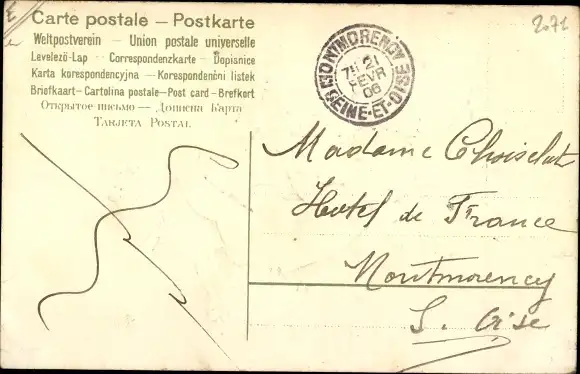 2071
Carte postale — Postkarte
Weltpostverein — Union postale universelle
Levelező-Lap — Correspondenzkarte — Dopisnice
Karta korespondencyjna — Korespondenční listek
Briefkaart - Cartolina postale — Post card — Brefkort
Открытое письмо — Дописна Карта
Tarjeta Postal
MONTMORENCY
21
FEVR
06
SEINE-ET-OISE
Madame Choiselat
Hotel de France
Montmorency
S. Oise